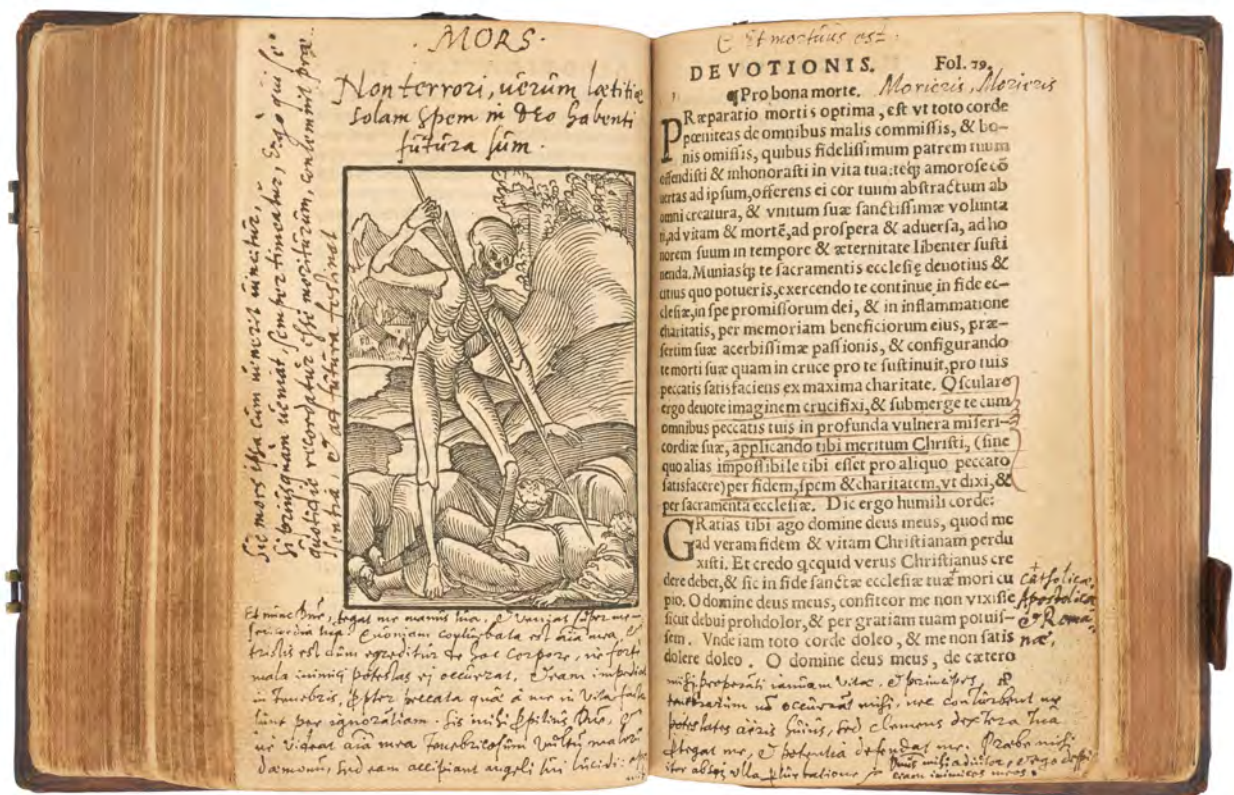 · MORS ·
Non terrori, uerùm lætitiæ
solam spem in Deo habenti
futura sum ·
Sic mors ipsa cùm uenerit uincitur,
Si priusquàm ueniat, semper timeatur, Ergo qui se
quotidie recordatur esse moriturum, contemnit præ-
sentia, & ad futura festinat
Et nunc Dñe, tegat me manus tua. & Veniat super me
sericordia tua. Quoniam conturbata est aĩa mea, &
tristis est dum egreditur de hoc corpore, ne forte
mala inimici potestas ej occurrat,
in Tenebris, peccata quæ à me in Vita facta
sunt per ignoratiam. Sis mihi Dñe, &
ne Videat aĩa mea Tenebricosum Vultum malorũ
dæmonũ, Sed eam accipiant angeli tui lucidi:
Et mortuus est.
DEVOTIONIS. Fol. 29.
¶Pro bona morte. Morieris, Morieris
PRæparatio mortis optima, eſt vt toto corde
pœniteas de omnibus malis commiſsis, & bo-
nis omiſsis, quibus fideliſsimum patrem tuum
offendiſti & inhonoraſti in vita tua: teq; amoroſe cõ
uertas ad ipſum, offerens ei cor tuum abſtractum ab
omni creatura, & vnitum ſuæ ſanctiſsimæ volunta
ti, ad vitam & mortẽ, ad proſpera & aduerſa, ad ho
norem ſuum in tempore & æternitate libenter ſuſti
nenda. Muniasq; te ſacramentis eccleſię deuotius &
citius quo potueris, exercendo te continue in fide ec-
cleſiæ, in ſpe promiſſorum dei, & in inflammatione
charitatis, per memoriam beneficiorum eius, præ-
ſertim ſuæ acerbiſsimæ paſsionis, & configurando
te morti ſuæ quam in cruce pro te ſuſtinuit, pro tuis
peccatis ſatisfaciens ex maxima charitate. Oſculare
ergo deuote imaginem crucifixi, & ſubmerge te cum
omnibus peccatis tuis in profunda vulnera miſeri-
cordiæ ſuæ, applicando tibi meritum Chriſti, (ſine
quo alias impoſsibile tibi eſſet pro aliquo peccato
ſatisfacere) per fidem, ſpem & charitatem, vt dixi, &
per ſacramenta eccleſiæ. Dic ergo humili corde:
GRatias tibi ago domine deus meus, quod me
ad veram fidem & vitam Chriſtianam perdu
xiſti. Et credo qcquid verus Chriſtianus cre
dere debet, & ſic in fide ſanctæ eccleſiæ tuæ mori cu
pio. O domine deus meus, confiteor me non vixiſſe
ſicut debui prohdolor, & per gratiam tuam potuiſ-
ſem. Vnde iam toto corde doleo, & me non ſatis
dolere doleo. O domine deus meus, de cætero
Catholicæ,
Apostolicæ
& Roma-
næ,
mihi properati ianuam Vitæ. & principes,
tenebrarum nõ occurrãt mihi, nec conturbent me
potestates aëris huius, sed clemens dextera tua
protegat me, & potentia defendat me. Præbe mihi
iter absq; ulla
Dñus mihi adiutor, & ego despi-
ciam inimicos meos.